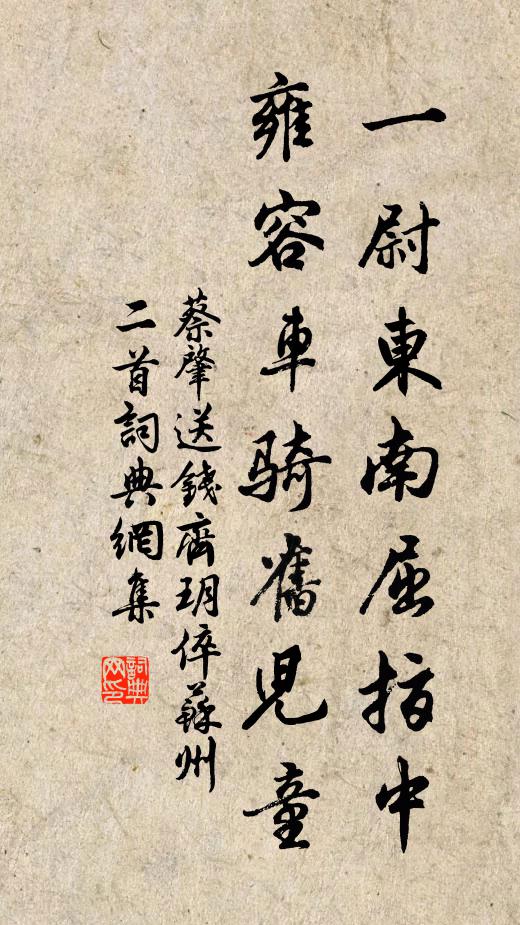 一尉東南屈指中
雍容車騎舊兒童
蔡肇送錢齊玥倅蘇州
二首詞典網集
詞典網印